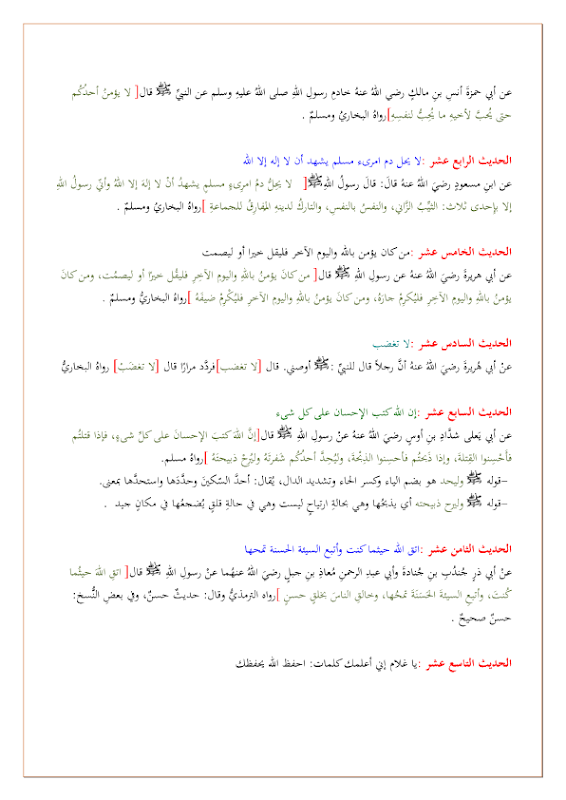 عن أبي حمزةَ أنسِ بنِ مالكٍ رضي اللهُ عنهُ خادمِ رسولِ اللهِ صلى اللهُ عليهِ وسلم عن النبيِّ ﷺ قال[ لا يؤمنُ أحدُكُم
حتى يُحبَّ لأخيهِ ما يُحِبُّ لنفسِهِ]رواهُ البخاريُ ومسلمٌ .
الحديث الرابع عشر :لا يحل دم امرىء مسلم يشهد أن لا إله إلا الله
عن ابنِ مسعودٍ رضيَ اللهُ عنهُ قالَ: قالَ رسولُ اللهِﷺ[ لا يحلُّ دمُ امرىءٍ مسلمٍ يشهدُ أنْ لا إلهَ إلا اللهُ وأنّي رسولُ اللهِ
إلا بإِحدى ثلاث: الثيِّبُ الزَّاني، والنفسُ بالنفسِ، والتاركُ لدينهِ المفارِقُ للجماعةِ ]رواهُ البخاريُ ومسلمٌ .
الحديث الخامس عشر :من كان يؤمن بالله واليوم الآخر فليقل خيرا أو ليصمت
عن أبي هريرةَ رضيَ اللهُ عنهُ عن رسولِ اللهِ ﷺ قال[ من كانَ يؤمنُ باللهِ واليومِ الآخِرِ فليقُل خيرًا أو ليصمُت، ومن كانَ
يؤمنُ باللهِ واليومِ الآخرِ فليُكرِمْ جارَهُ، ومن كانَ يؤمنُ باللهِ واليومِ الآخرِ فليُكْرِمْ ضيفَهُ ]رواهُ البخاريُّ ومسلمٌ .
الحديث السادس عشر :لا تغضب
عنْ أبي هُريرةَ رضيَ اللهُ عنهُ أنَّ رجلاً قال للنبيِّ :ﷺ أوصِني. قال [لا تغضب]فردَّد مرارًا قال [لا تغضَبْ] رواهُ البخاريُّ
الحديث السابع عشر :إن الله كتب الإحسان على كل شىء
عن أبي يَعلى شدَّادِ بنِ أوسٍ رضيَ اللهُ عنهُ عنْ رسولِ اللهِ ﷺ قال[إنَّ اللهَ كتبَ الإحسانَ على كلِّ شىءٍ، فإذا قتلتُم
فأَحْسِنوا القِتلةَ، وإذا ذَبحتُم فأحسِنوا الذِبْحةَ، وليُحِدَّ أحدُكُم شَفرتَهُ وليُرِحْ ذبيحتَهُ ]رواهُ مسلم.
–قوله ﷺ وليحد هو بضم الياء وكسر الحاء وتشديد الدال، يُقال: أحدَّ السّكينَ وحدَّدَها واستحدَّها بمعنى.
–قوله ﷺ وليرح ذبيحته أي يذبحُها وهي بحالةِ ارتياحٍ ليست وهي في حالةِ قلقٍ يُضجعُها في مكانٍ جيد .
الحديث الثامن عشر :اتق الله حيثما كنت وأتبع السيئة الحسنة تمحها
عنْ أبي ذَرٍ جُندُبِ بنِ جُنادةَ وأبي عبدِ الرحمنِ مُعاذِ بنِ جبلٍ رضيَ اللهُ عنهُما عنْ رسولِ اللهِ ﷺ قال[ اتقِ اللهَ حيثُما
كُنتَ، وأتبعِ السيئةَ الحَسَنَةَ تمحُها، وخالقِ الناسَ بخلقٍ حسنٍ ]رواه الترمذيُّ وقال: حديثٌ حسنٌ، وفي بعضِ النُّسخ:
حسنٌ صحيحٌ .
الحديث التاسع عشر :يا غلام إني أعلمك كلمات: احفظ الله يحفظك